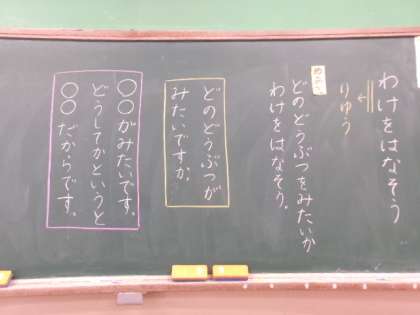 わけをはなそう
りゆう
めあて
どのどうぶつをみたいか
わけをはなそう。
どのどうぶつが
みたいですか。
○○がみたいです。
どうしてかというと
○○だからです。